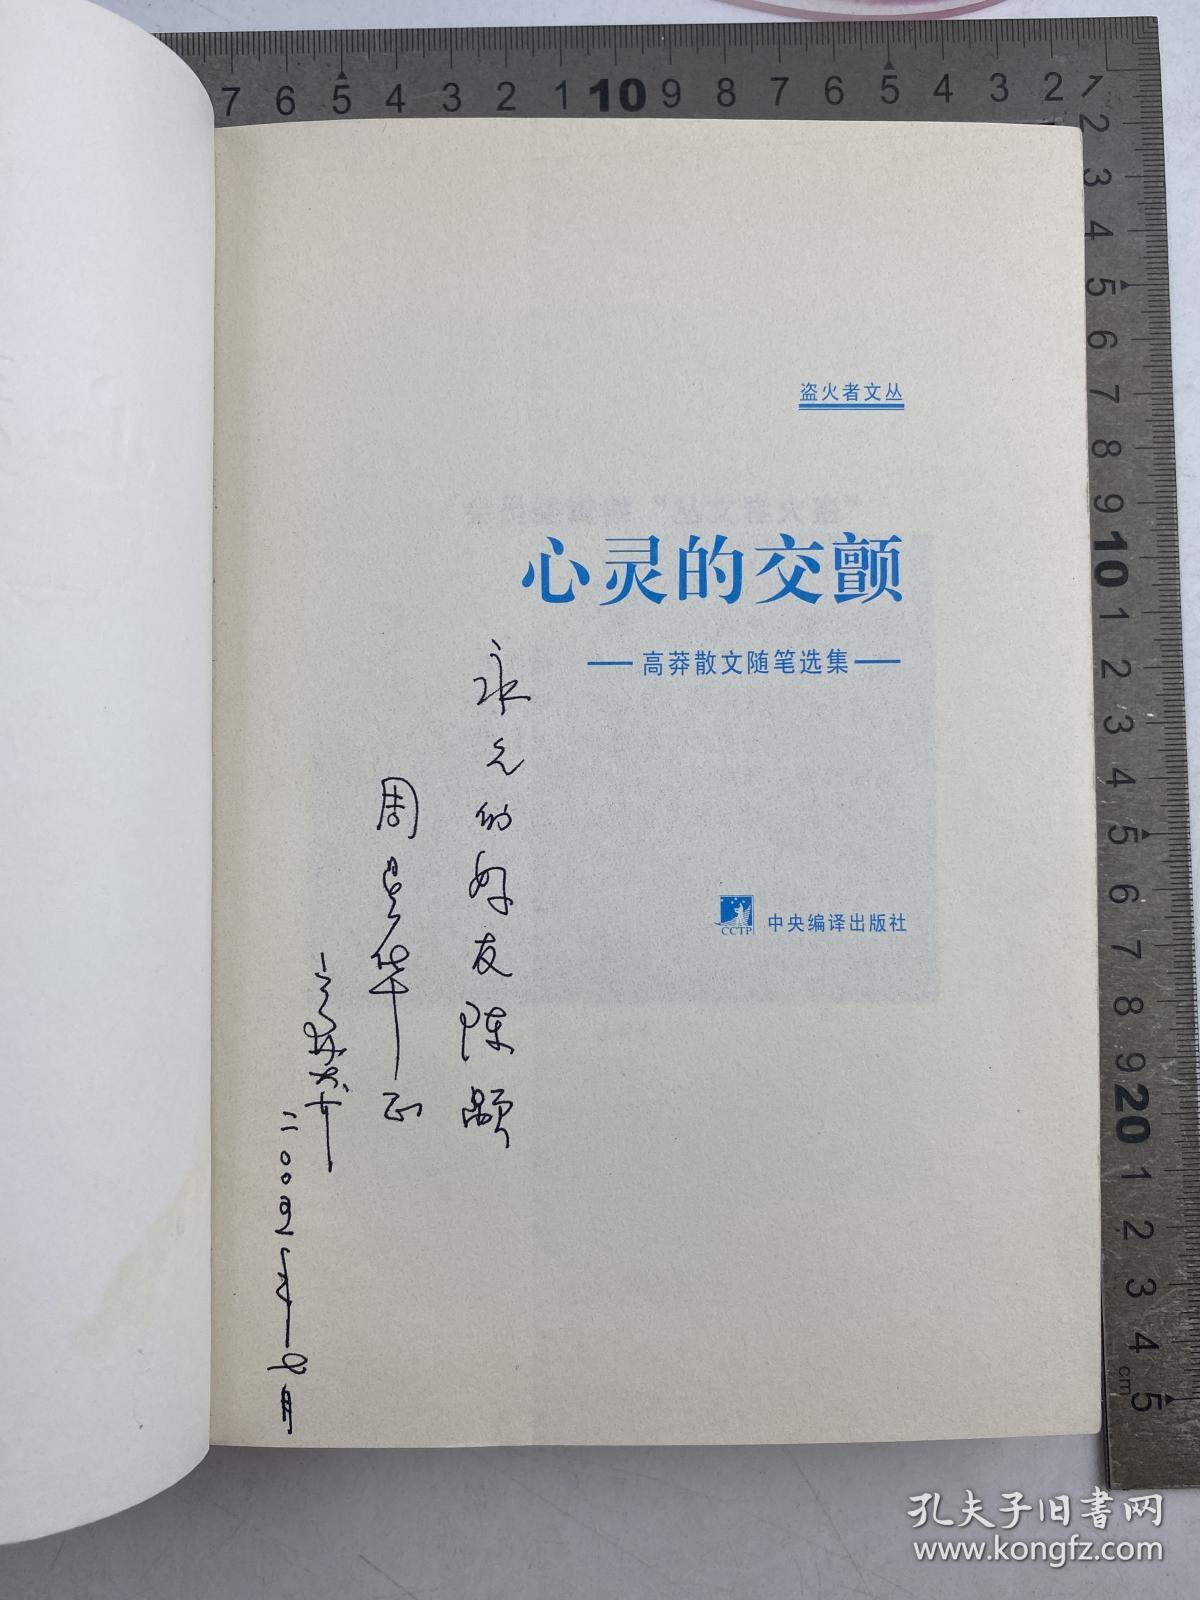 盗火者文丛
心灵的交颤
高莽散文随笔选集
CCTP 中央编译出版社
永远的好友陈颢
周昱华 正
高莽
二〇〇五年七月
7 6 5 4 3 2 1 10 9 8 7 6 5 4 3 2 1
2 3 4 5 6 7 8 9 10 1 2 3 4 5 6 7 8 9 20 1 2 3 4 cm 5
孔夫子旧书网
www.kongfz.com